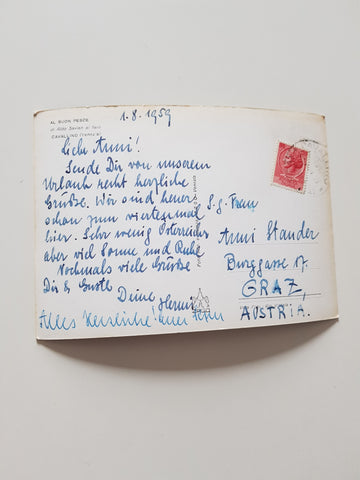 1.8.1959
AL BUON PESCE
di Aldo Savian al faro
CAVALLINO (Venezia)
Liebe Anni!
Sende Dir von unserem
Urlaub recht herzliche
Grüße. Wir sind heuer
schon zum viertenmal
hier. Sehr wenig Österreicher
aber viel Sonne und Ruhe
Nochmals viele Grüße
Dir & Gustl
Deine Hermi
Alles Herzliche! Euer
S.g. Frau
Anni Stander
Burggasse 17.
GRAZ,
AUSTRIA.